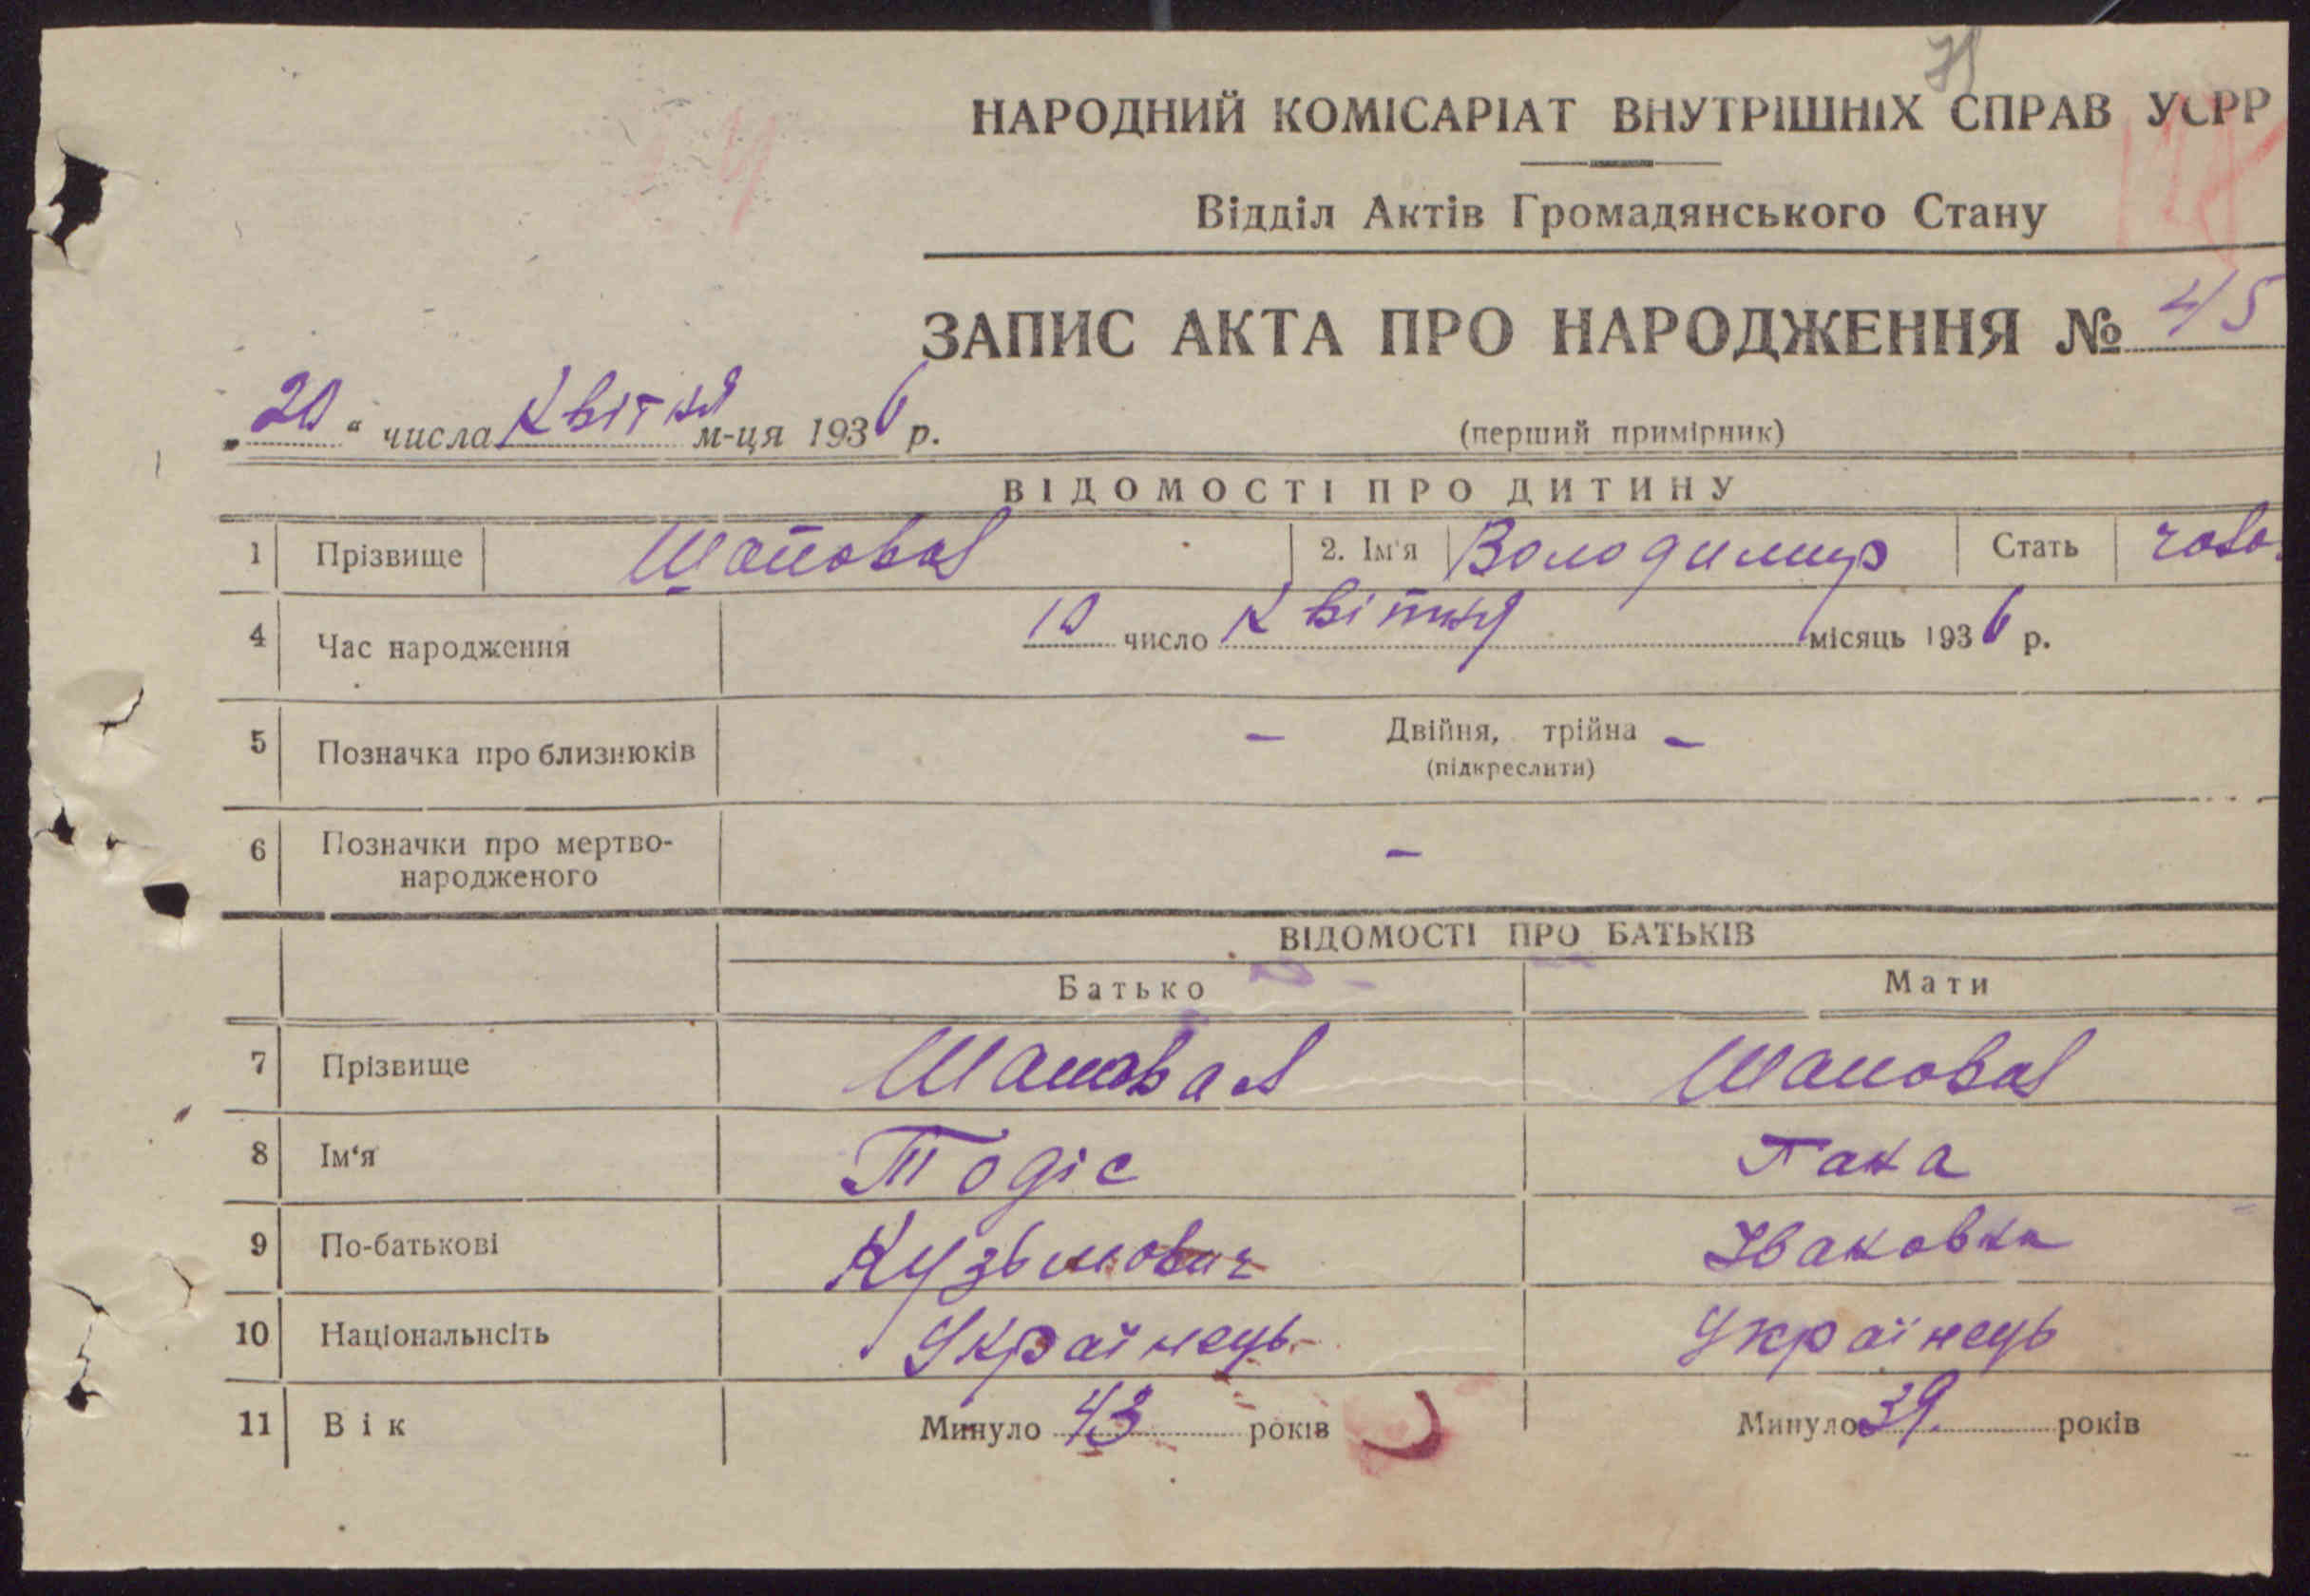 НАРОДНИЙ КОМІСАРІАТ ВНУТРІШНІХ СПРАВ УСРР
Відділ Актів Громадянського Стану
ЗАПИС АКТА ПРО НАРОДЖЕННЯ № 45
„20“ числа Квітня м-ця 1936 р.
(перший примірник)
ВІДОМОСТІ ПРО ДИТИНУ
1 Прізвище Шаповал 2. Ім'я Володимир Стать чоло.
4 Час народження 10 число Квітня місяць 1936 р.
5 Позначка про близнюків – Двійня, трійна –
(підкреслити)
6 Позначки про мертво-
народженого –
ВІДОМОСТІ ПРО БАТЬКІВ
Батько Мати
7 Прізвище Шаповал Шаповал
8 Ім‘я Тодіс
9 По-батькові Кузьмович Івановна
10 Національнсіть Українець Українець
11 Вік Минуло 43 років Минуло 39. років